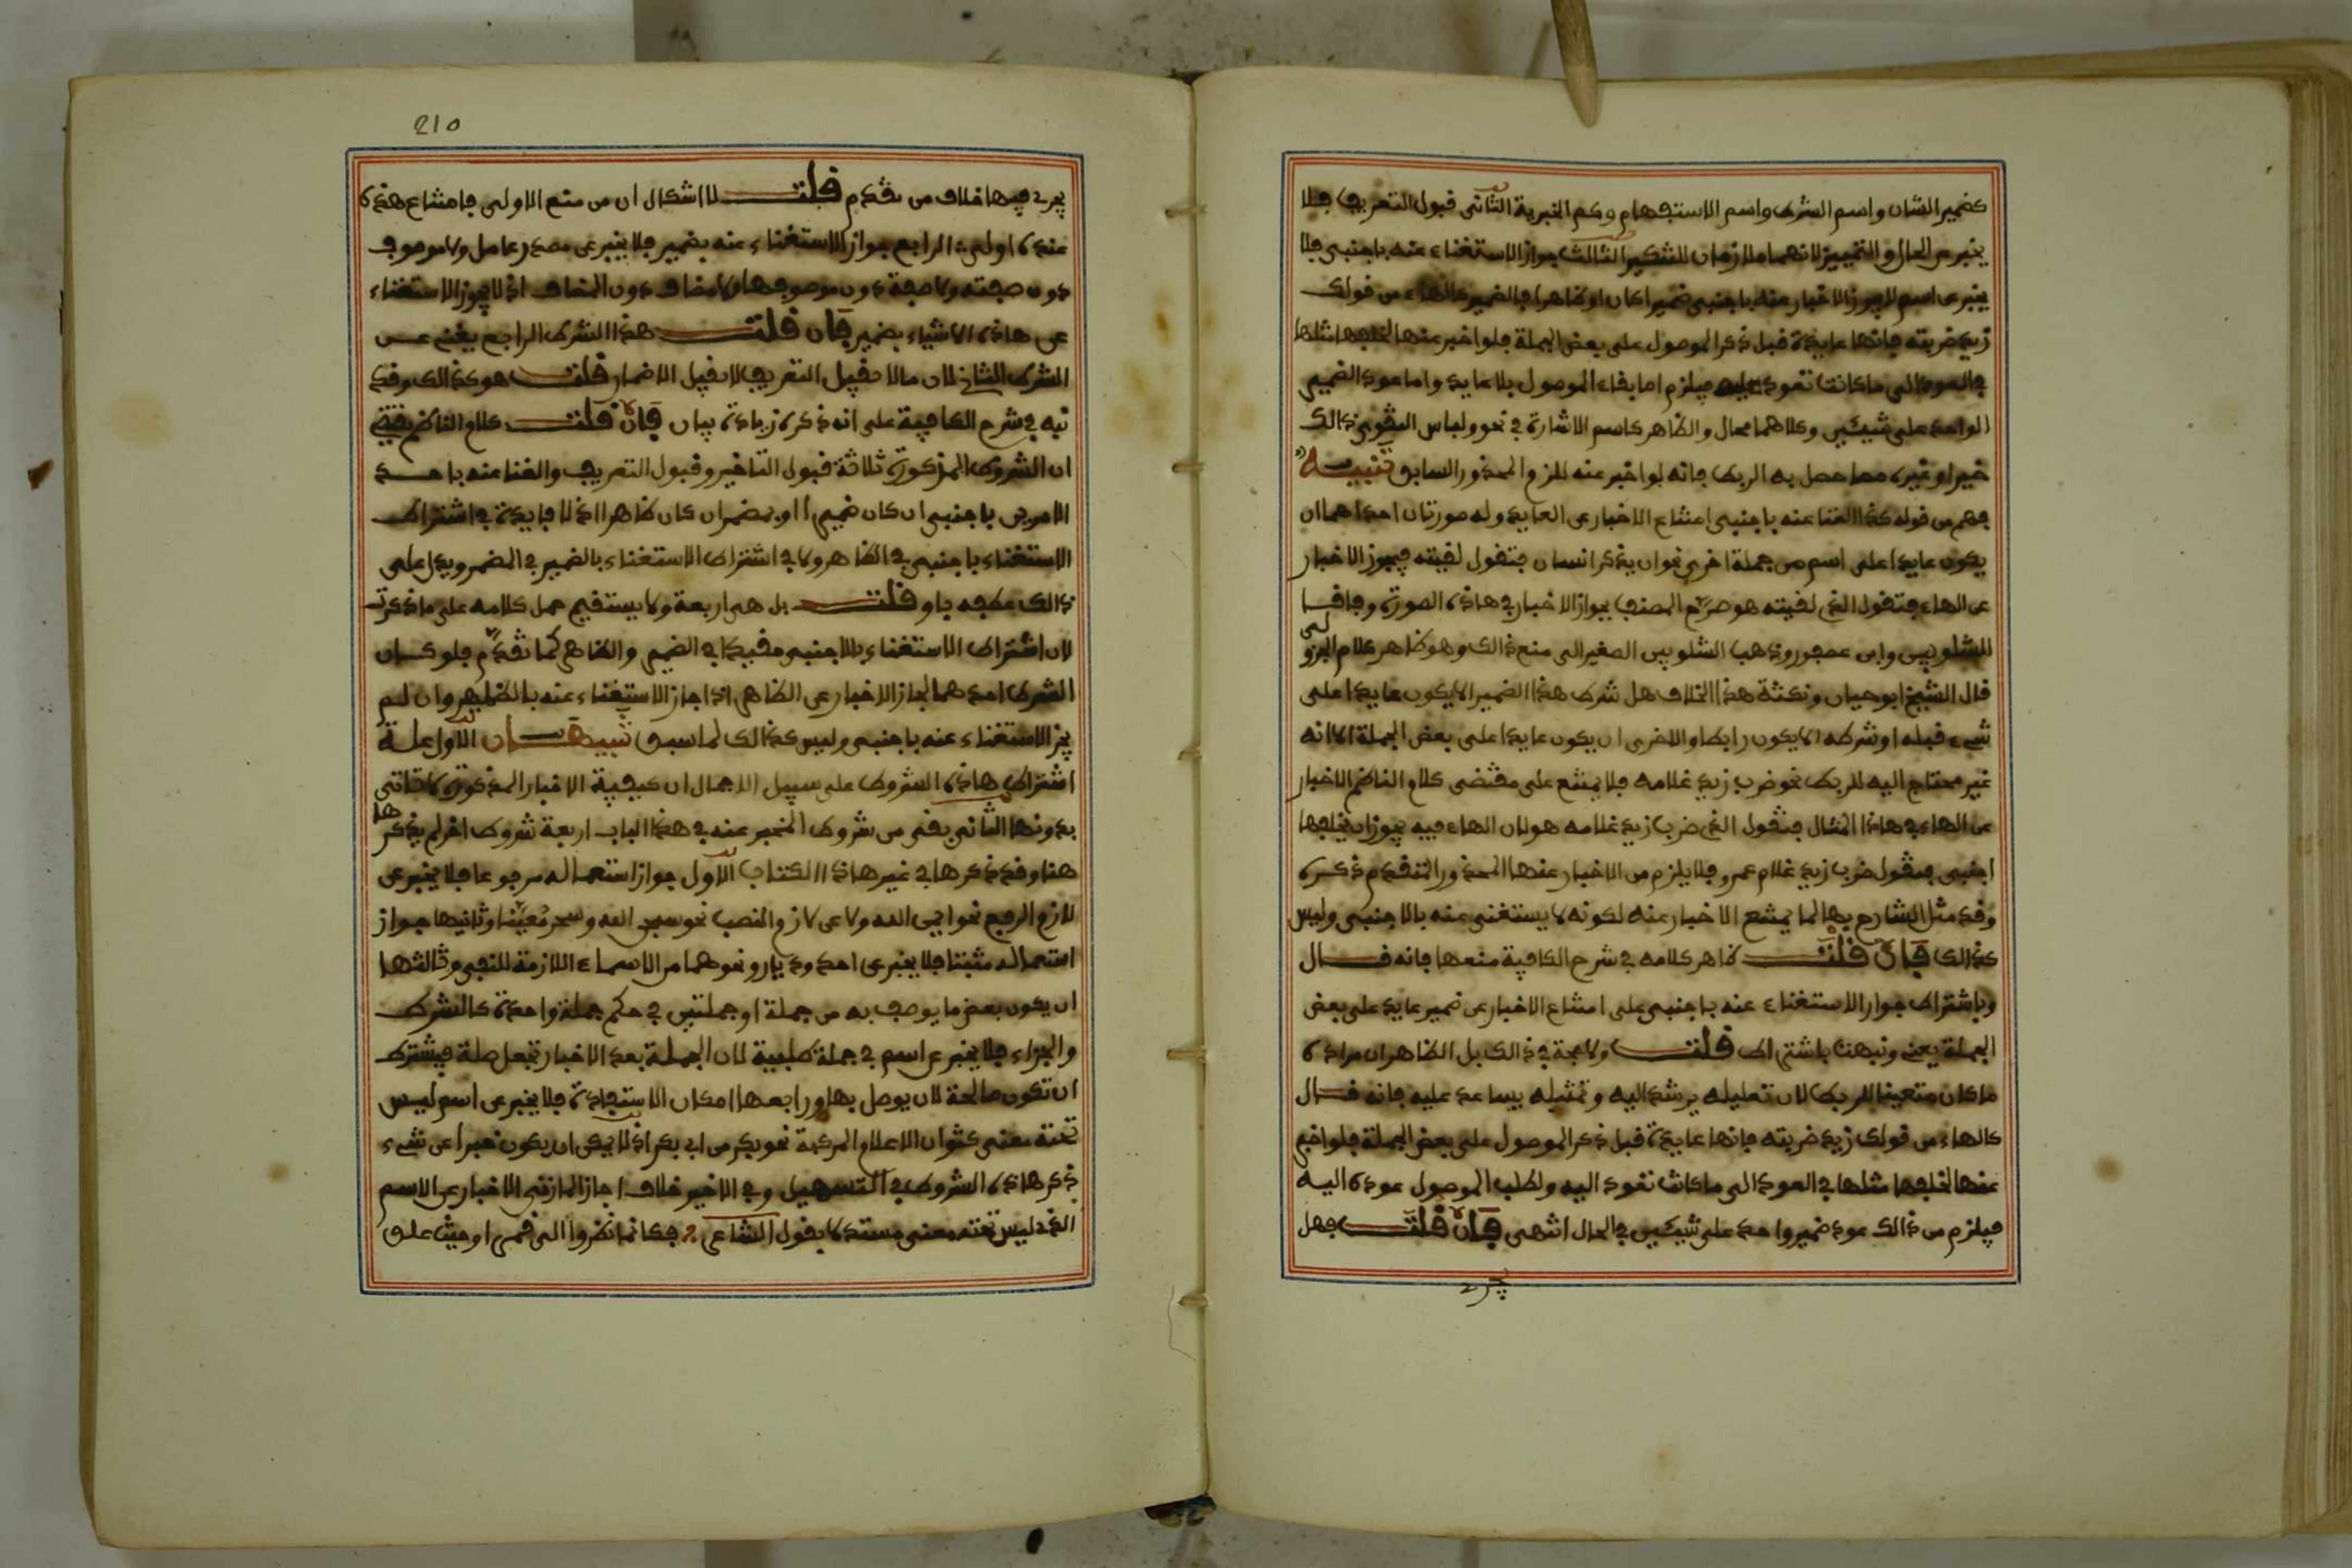 كضمير الشان واسم الشرط واسم الاستفهام وكم الخبرية الثانى قبول التعريف فلا
يخبر عن الحال والتمييز لانهما ملازمان للتنكير الثالث جواز الاستغناء عنه باجنبى فلا
يخبر عن اسم لا يجوز الاخبار عنه باجنبى ضميرا كان او ظاهرا فالضمير كالهاء من قولك
زيد ضربته فانها عايدة قبل ذكر الموصول على بعض الجملة فلو اخبر عنها لخلفها مثلها
في العود الى ما كانت تعود عليه فيلزم اما بقاء الموصول بلا عايد واما عود الضمير
الواحد على شيئين وكلاهما محال والظاهر كاسم الاشارة في نحو ولباس التقوى ذالك
خير او غيره مما حصل به الربط فانه لو اخبر عنه للزم المحذور السابق تنبيه
فهم من قوله كذا الغنا عنه باجنبى امتناع الاخبار عن العايد وله صورتان احداهما ان
يكون عايدا على اسم من جملة اخرى نحو ان يذكر انسان فتقول لقيته فيجوز الاخبار
عن الهاء فتقول الذي لقيته هو صرّح المصنف بجواز الاخبار في هاذه الصورة وفاقا
للشلوبين وابن عصفور وذهب الشلوبين الصغير الى منع ذالك وهو ظاهر كلام الجزولى
قال الشيخ ابو حيان ونكتة هذا الخلاف هل شرط هذا الضمير الا يكون عايدا على
شيء قبله او شرطه الا يكون رابطا والاخرى ان يكون عايدا على بعض الجملة الا انه
غير محتاج اليه للربط نحو ضرب زيد غلامه فلا يمتنع على مقتضى كلام الناظم الاخبار
عن الهاء في هاذا المثال فتقول الذي ضرب زيد غلامه هو لان الهاء فيه يجوز ان يخلفها
اجنبى فتقول ضرب زيد غلام عمرو فلا يلزم من الاخبار عنها المحذور المتقدم ذكره
وقد مثل الشارح بها لما يمتنع الاخبار عنه لكونه لا يستغنى عنه بالاجنبى وليس
كذالك فان قلت ظاهر كلامه في شرح الكافية منعها فانه قال
وباشتراط جواز الاستغناء عنه باجنبى على امتناع الاخبار عن ضمير عايد على بعض
الجملة يعنى ونبهت باشتراط قلت ولا حجة في ذالك بل الظاهر ان مراده
ما كان متعينا للربط لان تعليله يرشد اليه وتمثيله يساعد عليه فانه قال
كالهاء من قولك زيد ضربته فانها عايدة قبل ذكر الموصول على بعض الجملة فلو اخبر
عنها لخلفها مثلها في العود الى ما كانت تعود اليه ولطلب الموصول عوده اليه
فيلزم من ذالك عود ضمير واحد على شيئين في الحال انتهى فان قلت فهل
يجرى
210
يجرى فيها خلاف من تقدم قلت لا اشكال ان من منع الاولى فامتناع هذه
عنده اولى الرابع جواز الاستغناء عنه بضمير فلا يخبر عن مصدر عامل ولا موصوف
دون صفته ولا صفة دون موصوفها ولا مضاف دون المضاف اذ لا يجوز الاستغناء
عن هاذه الاشياء بضمير فان قلت هذا الشرط الرابع يغنى عن
الشرط الثانى لان ما لا يقبل التعريف لا يقبل الاضمار قلت هو كذالك وقد
نبه في شرح الكافية على انه ذكره زيادة بيان فان قلت كلام الناظم يقتضى
ان الشروط المذكورة ثلاثة قبول التاخير وقبول التعريف والغنا عنه باحد
الامرين باجنبى ان كان ضميرا او بمضمر ان كان ظاهرا اذ لا فايدة في اشتراط
الاستغناء باجنبى في الظاهر ولا في اشتراط الاستغناء بالضمير في المضمر ويدل على
ذالك عطفه باو قلت بل هى اربعة ولا يستقيم حمل كلامه على ما ذكرت
لان اشتراط الاستغناء بالاجنبى مقيد في الضمير والظاهر كما تقدّم فلو كان
الشرط احدهما لجاز الاخبار عن الظاهر اذا جاز الاستغناء عنه بالضمير وان لم
يجز الاستغناء عنه باجنبى وليس كذالك لما سبق تنبيهان الاول علة
اشتراط هاذه الشروط على سبيل الاجمال ان كيفية الاخبار المذكورة لا تتاتى
بدونها الثانى بقى من شروط المخبر عنه في هذا الباب اربعة شروط اخر لم يذكرها
هنا وقد ذكرها في غير هاذا الكتاب الاول جواز استعماله مرفوعا فلا يخبر عن
لازم الرفع نحو ايمن الله ولا عن لازم النصب نحو سبحن الله وسحر مُعيّنا وثانيها جواز
استعماله مثبتا فلا يخبر عن احد وديار ونحوهما من الاسماء اللازمة للنفى وثالثها
ان يكون بعض ما يوصف به من جملة او جملتين في حكم جملة واحدة كالشرط
والجزاء فلا يخبر عن اسم في جملة طلبية لان الجملة بعد الاخبار تجعل صلة فيشترط
ان تكون صالحة لان يوصل بها ورابعها امكان الاستفادة فلا يخبر عن اسم ليس
تحته معنى كثوانى الاعلام المركبة نحو بكر من ابى بكر اذ لا يمكن ان يكون خبرا عن شيء
ذكر هاذه الشروط في التسهيل وفي الاخير خلاف اجاز المازنى الاخبار عن الاسم
الذي ليس تحته معنى مستدلا بقول الشاعر فكانما نظروا الى قمر او حيث علق